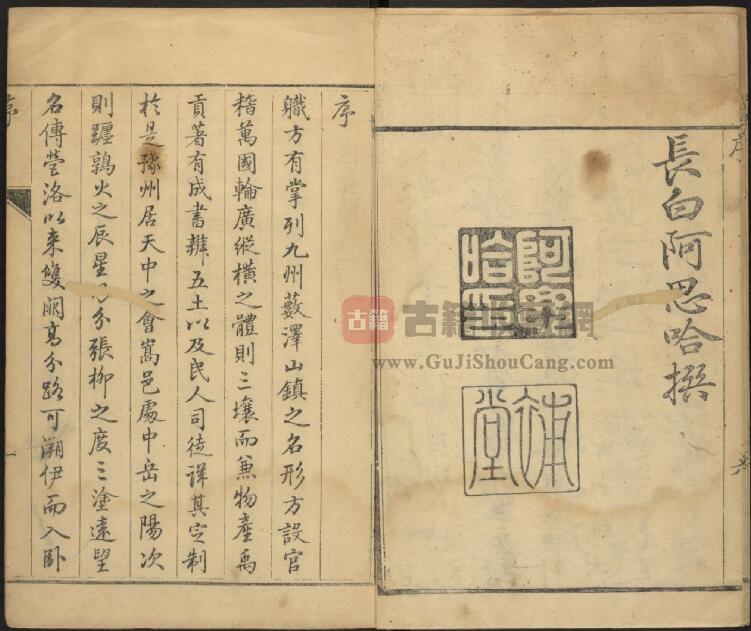 長白阿思哈撰
阿思哈印
補堂
序
職方有掌列九州藪澤山鎮之名形方設官
稽萬國輪廣縱横之體則三壤而兼物產禹
貢著有成書辨五土以及民人司徒詳其定制
於是豫州居天中之會嵩邑處中岳之陽次
則躔鶉火之辰星乃分張柳之度三塗遠望
名傳營洛以来雙闕高分路可溯伊而入卧
序
一
古籍
www.GuJiShouCang.com